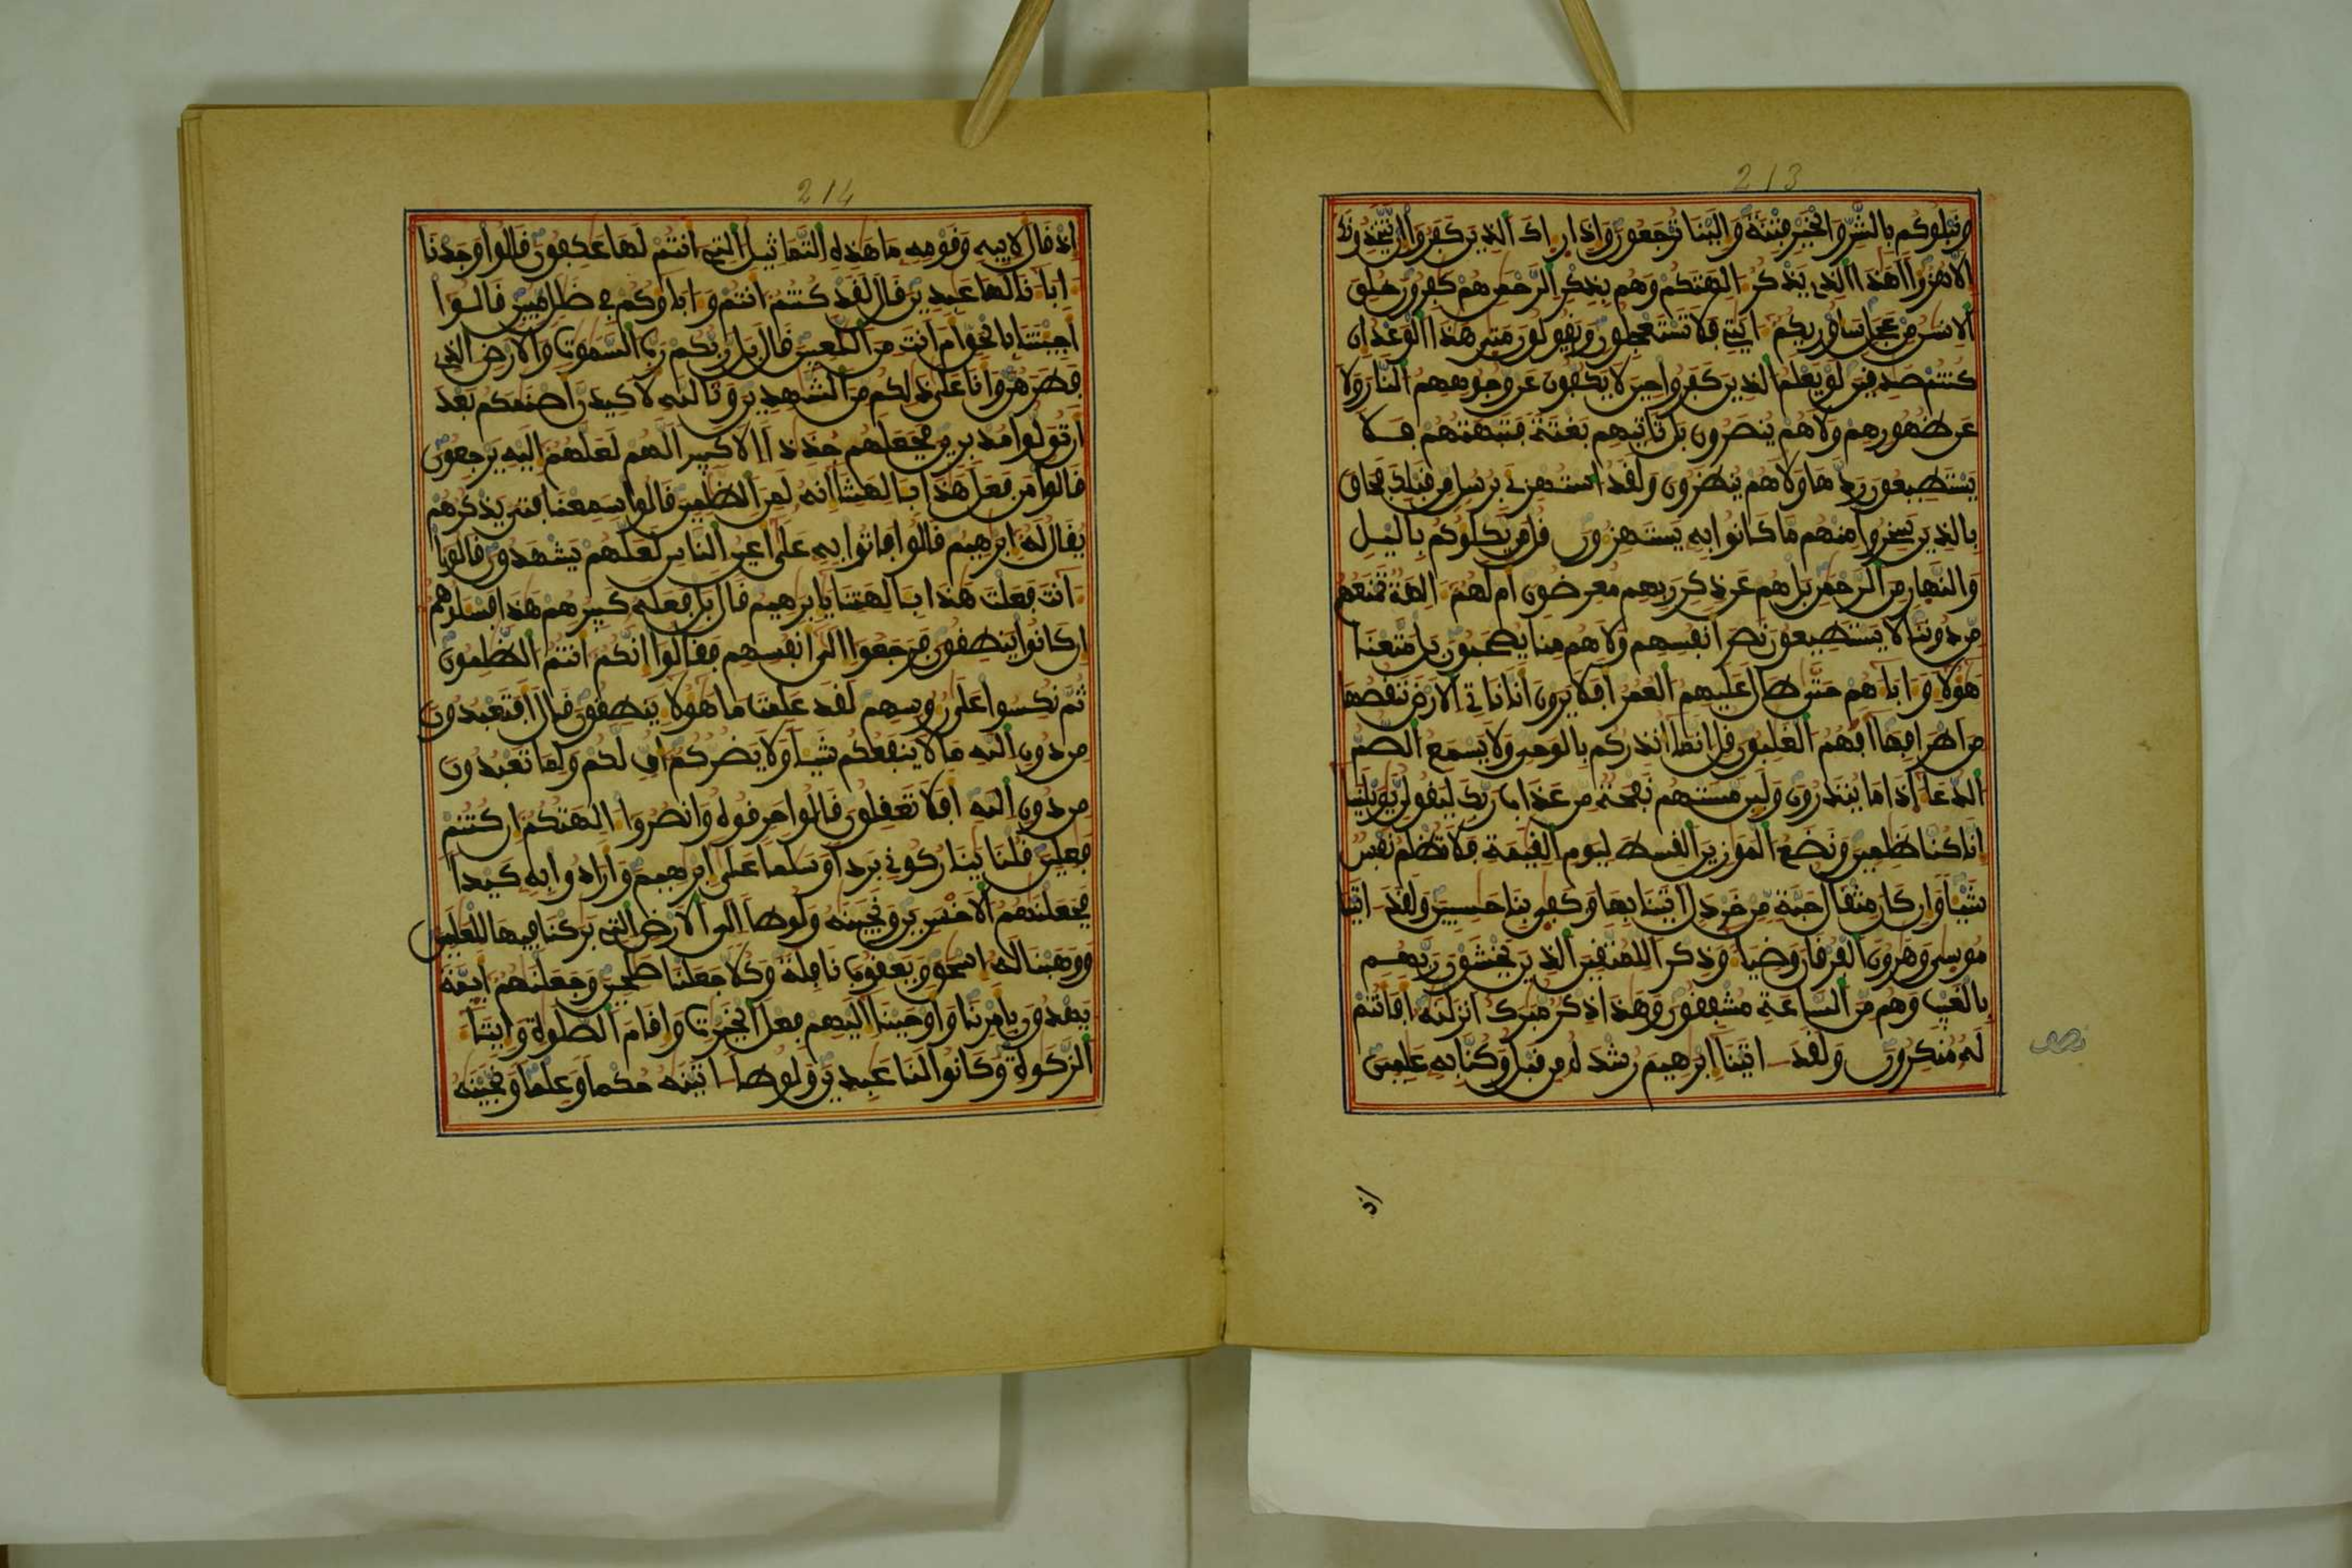 213
ونبلوكم بالشر والخير فتنة والينا ترجعون واذا راك الذين كفروا ان يتخذونك
الا هزوا اهذا الذي يذكر الهتكم وهم بذكر الرحمن هم كفرون خلق
الانسن من عجل ساوريكم ايتي فلا تستعجلون ويقولون متى هذا الوعد ان
كنتم صدقين لو يعلم الذين كفروا حين لا يكفون عن وجوههم النار ولا
عن ظهورهم ولا هم ينصرون بل تاتيهم بغتة فتبهتهم فلا
يستطيعون ردها ولا هم ينظرون ولقد استهزئ برسل من قبلك فحاق
بالذين سخروا منهم ما كانوا به يستهزون قل من يكلوكم باليل
والنهار من الرحمن بل هم عن ذكر ربهم معرضون ام لهم الهة تمنعهم
من دوننا لا يستطيعون نصر انفسهم ولا هم منا يصحبون بل متعنا
هولا واباهم حتى طال عليهم العمر افلا يرون انا ناتي الارض ننقصها
من اطرافها افهم الغلبون قل انما انذركم بالوحي ولا يسمع الصم
الدعا اذا ما ينذرون ولين مستهم نفحة من عذاب ربك ليقولن يويلنا
انا كنا ظلمين ونضع الموزين القسط ليوم القيمة فلا تظلم نفس
شيا وان كان مثقال حبة من خردل اتينا بها وكفى بنا حسبين ولقد اتينا
موسى وهرون الفرقان وضيا وذكرا للمتقين الذين يخشون ربهم
بالغيب وهم من الساعة مشفقون وهذا ذكر مبرك انزلنه افانتم
له منكرون ولقد اتينا ابرهيم رشده من قبل وكنا به علمين
نصف
اذ
214
اذ قال لابيه وقومه ما هذه التماثيل التي انتم لها عكفون قالوا وجدنا
ابانا لها عبدين قال لقد كنتم انتم واباوكم في ضلل مبين قالوا
اجيتنا بالحق ام انت من اللعبين قال بل ربكم رب السموت والارض الذي
فطرهن وانا على ذلكم من الشهدين وتالله لاكيدن اصنمكم بعد
ان تولوا مدبرين فجعلهم جذذا الا كبيرا لهم لعلهم اليه يرجعون
قالوا من فعل هذا بالهتنا انه لمن الظلمين قالوا سمعنا فتى يذكرهم
يقال له ابرهيم قالوا فاتوا به على اعين الناس لعلهم يشهدون قالوا
انت فعلت هذا بالهتنا يابرهيم قال بل فعله كبيرهم هذا فسلوهم
ان كانوا ينطقون فرجعوا الى انفسهم فقالوا انكم انتم الظلمون
ثم نكسوا على روسهم لقد علمت ما هولا ينطقون قال افتعبدون
من دون الله ما لا ينفعكم شيا ولا يضركم اف لكم ولما تعبدون
من دون الله افلا تعقلون قالوا حرقوه وانصروا الهتكم ان كنتم
فعلين قلنا ينار كوني بردا وسلما على ابرهيم وارادوا به كيدا
فجعلنهم الاخسرين ونجينه ولوطا الى الارض التي بركنا فيها للعلمين
ووهبنا له اسحق ويعقوب نافلة وكلا جعلنا صلحين وجعلنهم ايمة
يهدون بامرنا واوحينا اليهم فعل الخيرت واقام الصلوة وايتا
الزكوة وكانوا لنا عبدين ولوطا اتينه حكما وعلما ونجينه